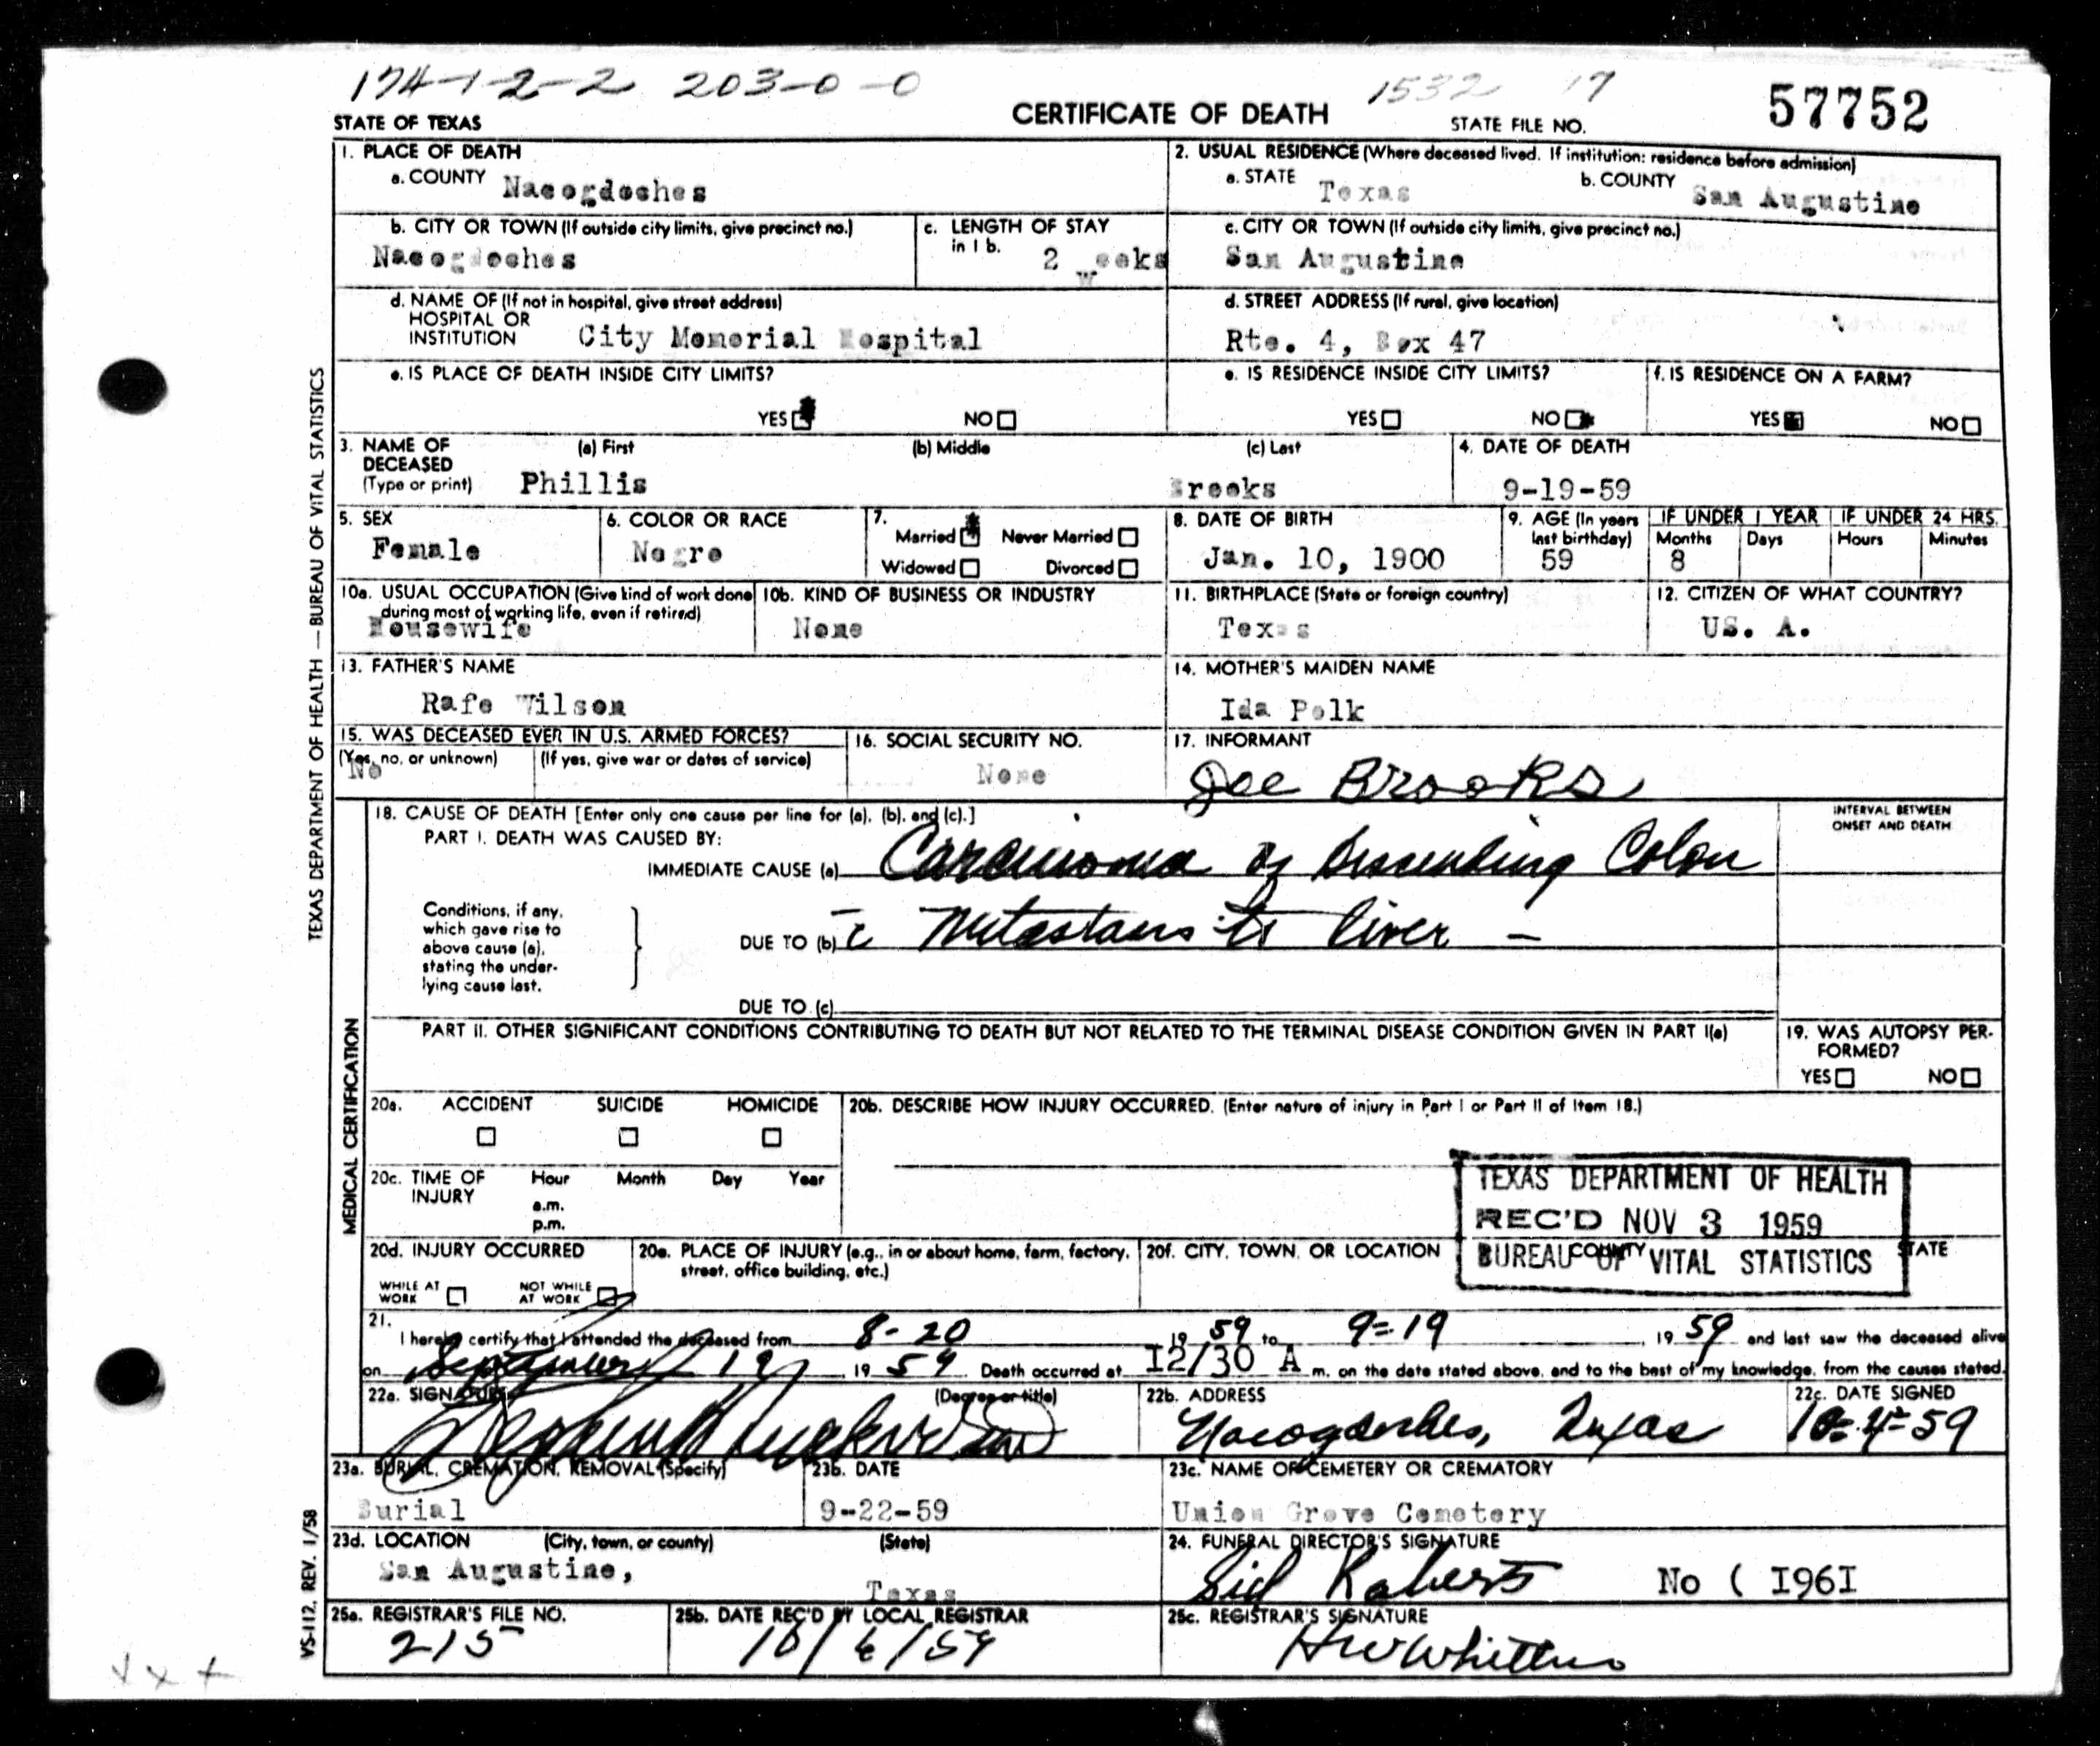 174-1-2-2 203-0-0
1532 17
57752
STATE OF TEXAS
CERTIFICATE OF DEATH
STATE FILE NO.
TEXAS DEPARTMENT OF HEALTH — BUREAU OF VITAL STATISTICS
1. PLACE OF DEATH
a. COUNTY Nacogdoches
2. USUAL RESIDENCE (Where deceased lived. If institution: residence before admission)
a. STATE Texas b. COUNTY San Augustine
b. CITY OR TOWN (If outside city limits, give precinct no.)
Nacogdoches
c. LENGTH OF STAY
in 1 b. 2 weeks
c. CITY OR TOWN (If outside city limits, give precinct no.)
San Augustine
d. NAME OF (If not in hospital, give street address)
HOSPITAL OR
INSTITUTION City Memorial Hospital
d. STREET ADDRESS (If rural, give location)
Rte. 4, Box 47
e. IS PLACE OF DEATH INSIDE CITY LIMITS?
YES NO
e. IS RESIDENCE INSIDE CITY LIMITS?
YES NO
f. IS RESIDENCE ON A FARM?
YES NO
3. NAME OF
DECEASED
(Type or print)
(a) First (b) Middle (c) Last
Phillis Brooks
4. DATE OF DEATH
9-19-59
5. SEX
Female
6. COLOR OR RACE
Negro
7.
Married Never Married
Widowed Divorced
8. DATE OF BIRTH
Jan. 10, 1900
9. AGE (In years
last birthday)
59
IF UNDER 1 YEAR IF UNDER 24 HRS.
Months Days Hours Minutes
8
10a. USUAL OCCUPATION (Give kind of work done
during most of working life, even if retired)
Housewife
10b. KIND OF BUSINESS OR INDUSTRY
None
11. BIRTHPLACE (State or foreign country)
Texas
12. CITIZEN OF WHAT COUNTRY?
US. A.
13. FATHER'S NAME
Rafe Wilson
14. MOTHER'S MAIDEN NAME
Ida Polk
15. WAS DECEASED EVER IN U.S. ARMED FORCES?
(Yes, no, or unknown) (If yes, give war or dates of service)
No
16. SOCIAL SECURITY NO.
None
17. INFORMANT
Joe Brooks
MEDICAL CERTIFICATION
18. CAUSE OF DEATH [Enter only one cause per line for (a), (b), and (c).]
PART I. DEATH WAS CAUSED BY:
IMMEDIATE CAUSE (a) Carcinoma of Descending Colon
INTERVAL BETWEEN
ONSET AND DEATH
Conditions, if any,
which gave rise to
above cause (a),
stating the under-
lying cause last.
DUE TO (b) c̄ Metastasis to liver —
DUE TO (c)
PART II. OTHER SIGNIFICANT CONDITIONS CONTRIBUTING TO DEATH BUT NOT RELATED TO THE TERMINAL DISEASE CONDITION GIVEN IN PART I(a)
19. WAS AUTOPSY PER-
FORMED?
YES NO
20a. ACCIDENT SUICIDE HOMICIDE
20b. DESCRIBE HOW INJURY OCCURRED. (Enter nature of injury in Part I or Part II of Item 18.)
20c. TIME OF
INJURY
Hour Month Day Year
a.m.
p.m.
TEXAS DEPARTMENT OF HEALTH
REC'D NOV 3 1959
BUREAU OF VITAL STATISTICS
20d. INJURY OCCURRED
WHILE AT
WORK
NOT WHILE
AT WORK
20e. PLACE OF INJURY (e.g., in or about home, farm, factory,
street, office building, etc.)
20f. CITY, TOWN, OR LOCATION COUNTY STATE
21.
I hereby certify that I attended the deceased from 8-20 19 59 to 9-19, 19 59 and last saw the deceased alive
on September 19, 19 59 Death occurred at 12/30 A m. on the date stated above, and to the best of my knowledge, from the causes stated.
22a. SIGNATURE (Degree or title)
22b. ADDRESS
Nacogdoches, Texas
22c. DATE SIGNED
10-4-59
23a. BURIAL, CREMATION, REMOVAL (Specify)
Burial
23b. DATE
9-22-59
23c. NAME OF CEMETERY OR CREMATORY
Union Grove Cemetery
23d. LOCATION (City, town, or county) (State)
San Augustine, Texas
24. FUNERAL DIRECTOR'S SIGNATURE
Sid Roberts No ( I96I
25a. REGISTRAR'S FILE NO.
215
25b. DATE REC'D BY LOCAL REGISTRAR
10/6/59
25c. REGISTRAR'S SIGNATURE
VS-112, REV. 1/58